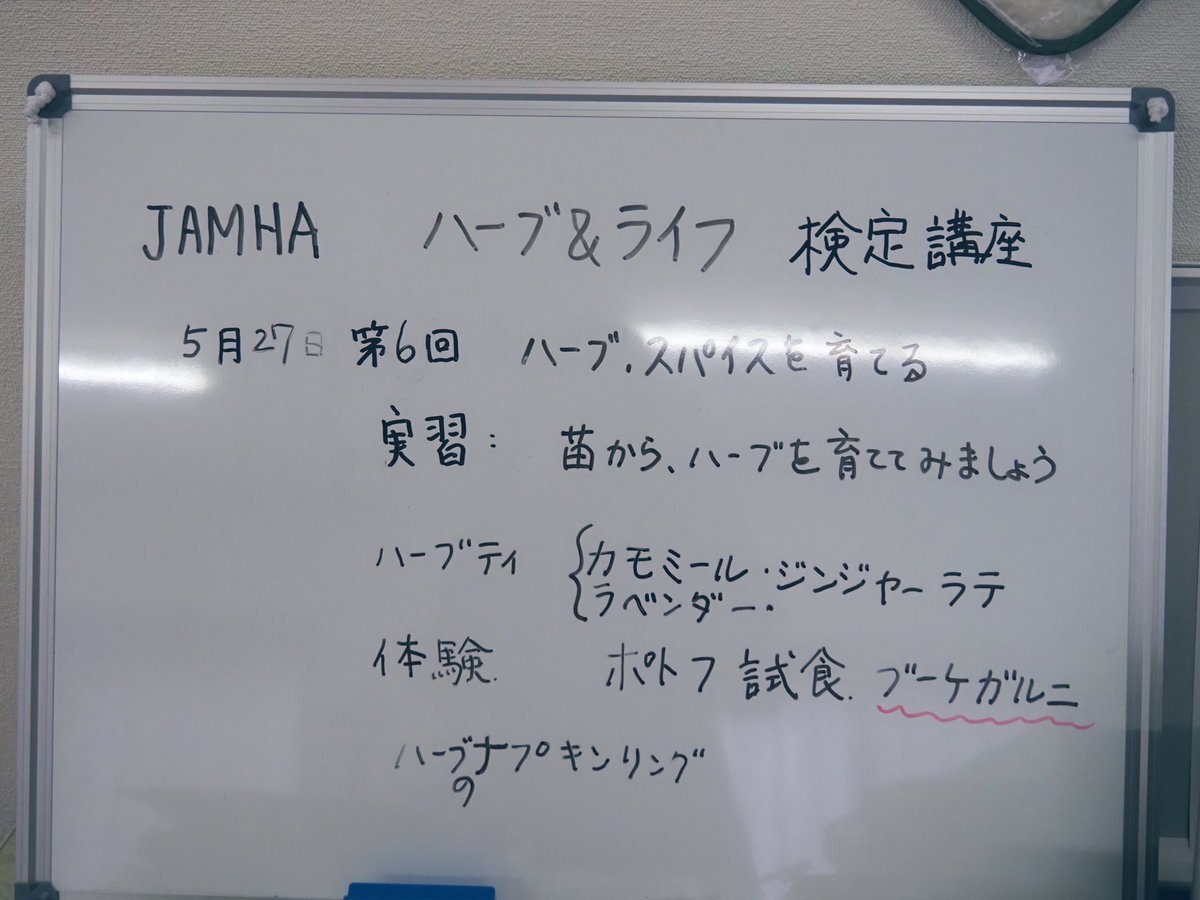 JAMHA ハーブ&ライフ 検定講座
5月27日 第6回 ハーブ.スパイスを育てる
実習: 苗から、ハーブを育ててみましょう
ハーブティ {カモミール・ジンジャーラテ
ラベンダー.
体験. ポトフ 試食. ブーケガルニ
ハーブのナプキンリング